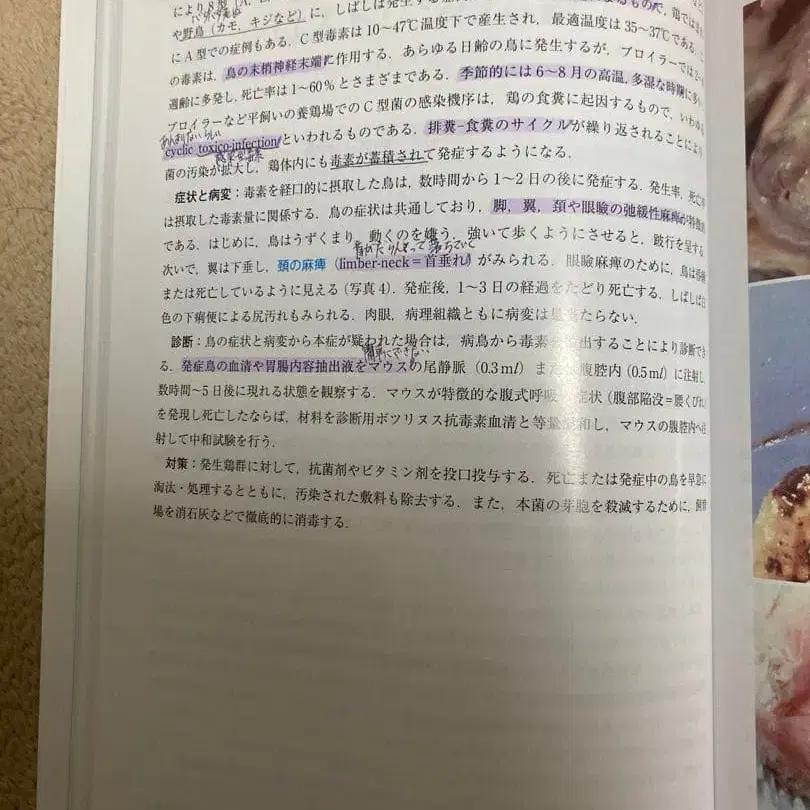 により8型
や野鳥（カモ，キジなど）に，しばしば発生する
にA型での症例もある．C型毒素は10〜47℃温度下で産生され，最適温度は35〜37℃である．
の毒素は，鳥の末梢神経末端に作用する．あらゆる日齢の鳥に発生するが，ブロイラーでは
週齢に多発し，死亡率は1〜60％とさまざまである．季節的には6〜8月の高温，多湿な時期に多
ブロイラーなど平飼いの養鶏場でのC型菌の感染機序は，鶏の食糞に起因するもので，いわゆる
cyclic toxico-infectionといわれるものである．排糞-食糞のサイクルが繰り返されることにより
菌の汚染が拡大し，鶏体内にも毒素が蓄積されて発症するようになる．
症状と病変：毒素を経口的に摂取した鳥は，数時間から1〜2日の後に発症する．発生率，死亡率
は摂取した毒素量に関係する．鳥の症状は共通しており，脚，翼，頚や眼瞼の弛緩性麻痺が特徴的
である．はじめに，鳥はうずくまり，動くのを嫌う．強いて歩くようにさせると，跛行を呈する
次いで，翼は下垂し，頚の麻痺（limber-neck＝首垂れ）がみられる．眼瞼麻痺のために，鳥は
または死亡しているように見える（写真4）．発症後，1〜3日の経過をたどり死亡する．しばしば
色の下痢便による尻汚れもみられる．肉眼，病理組織ともに病変は見当たらない．
診断：鳥の症状と病変から本症が疑われた場合は，病鳥から毒素を検出することにより診断でき
る．発症鳥の血清や胃腸内容抽出液をマウスの尾静脈（0.3 ml）または腹腔内（0.5 ml）に注射し，
数時間〜5日後に現れる状態を観察する．マウスが特徴的な腹式呼吸 症状（腹部陥没＝腰くびれ）
を発現し死亡したならば，材料を診断用ボツリヌス抗毒素血清と等量 和し，マウスの腹腔内へ注
射して中和試験を行う．
対策：発生鶏群に対して，抗菌剤やビタミン剤を投口投与する．死亡または発症中の鳥を早急に
淘汰・処理するとともに，汚染された敷料も除去する．また，本菌の芽胞を殺滅するために，
場を消石灰などで徹底的に消毒する．